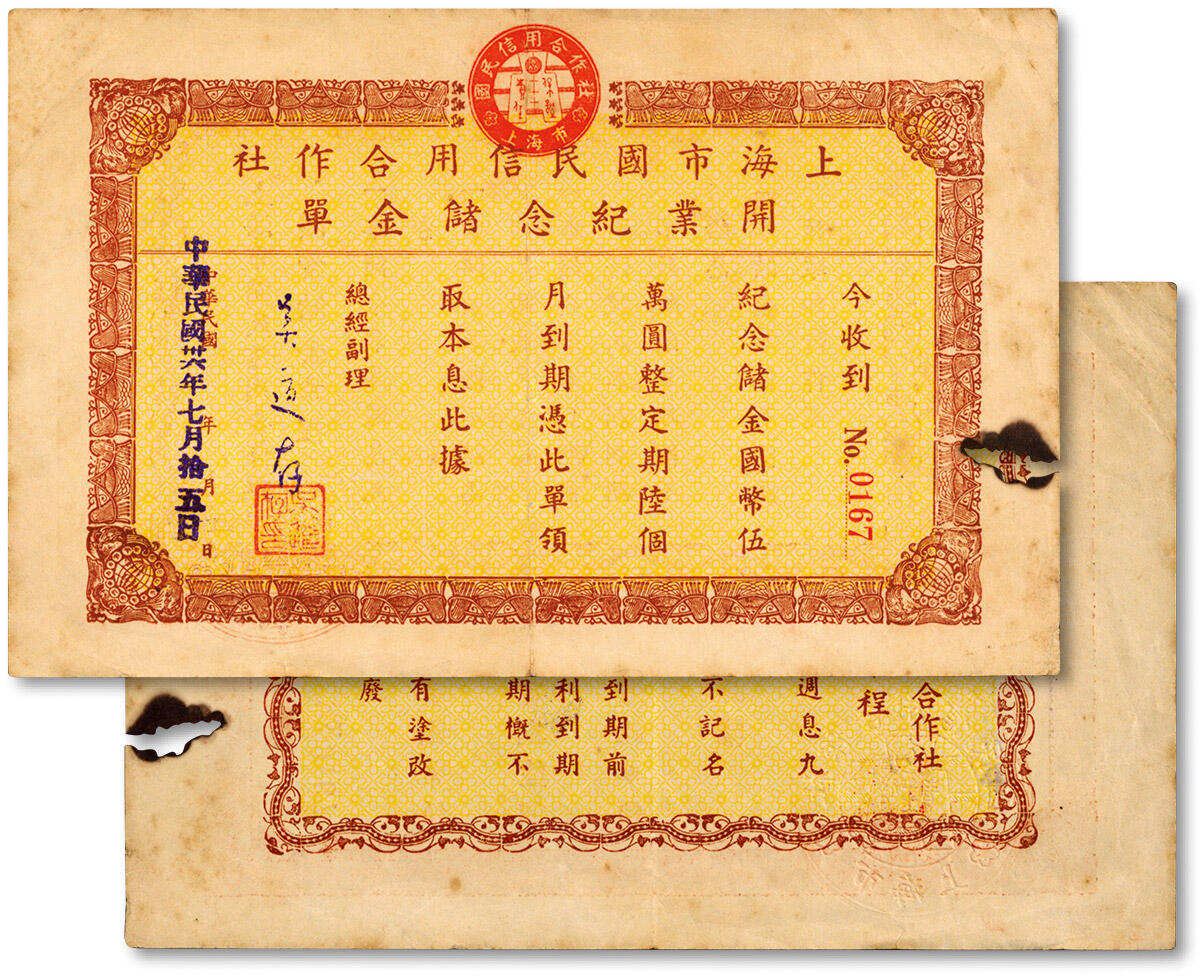 國民信用合作社
上海市
上海市國民信用合作社
開業紀念儲金單
今收到 No. 0167
紀念儲金國幣伍
萬圓整定期陸個
月到期憑此單領
取本息此據
總經副理
中華民國 年 月 日
中華民國卅六年七月拾五日
合作社
程
週息九
不記名
到期前
利到期
期概不
有塗改
廢
上海市